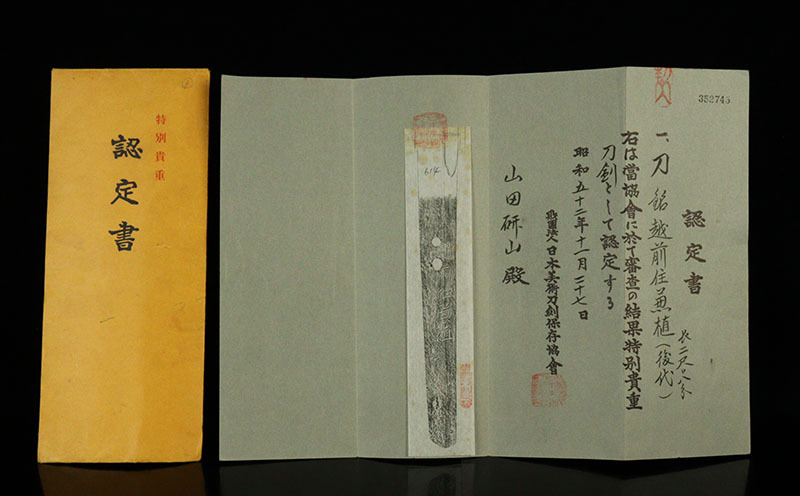 特別貴重
認定書
352745
認定書
一、刀 銘越前住兼植(後代)
右は當協會に於て審査の結果特別貴重
刀剣として認定する
昭和五十二年十一月二十七日
財團法人日本美術刀剣保存協會
山田研山殿